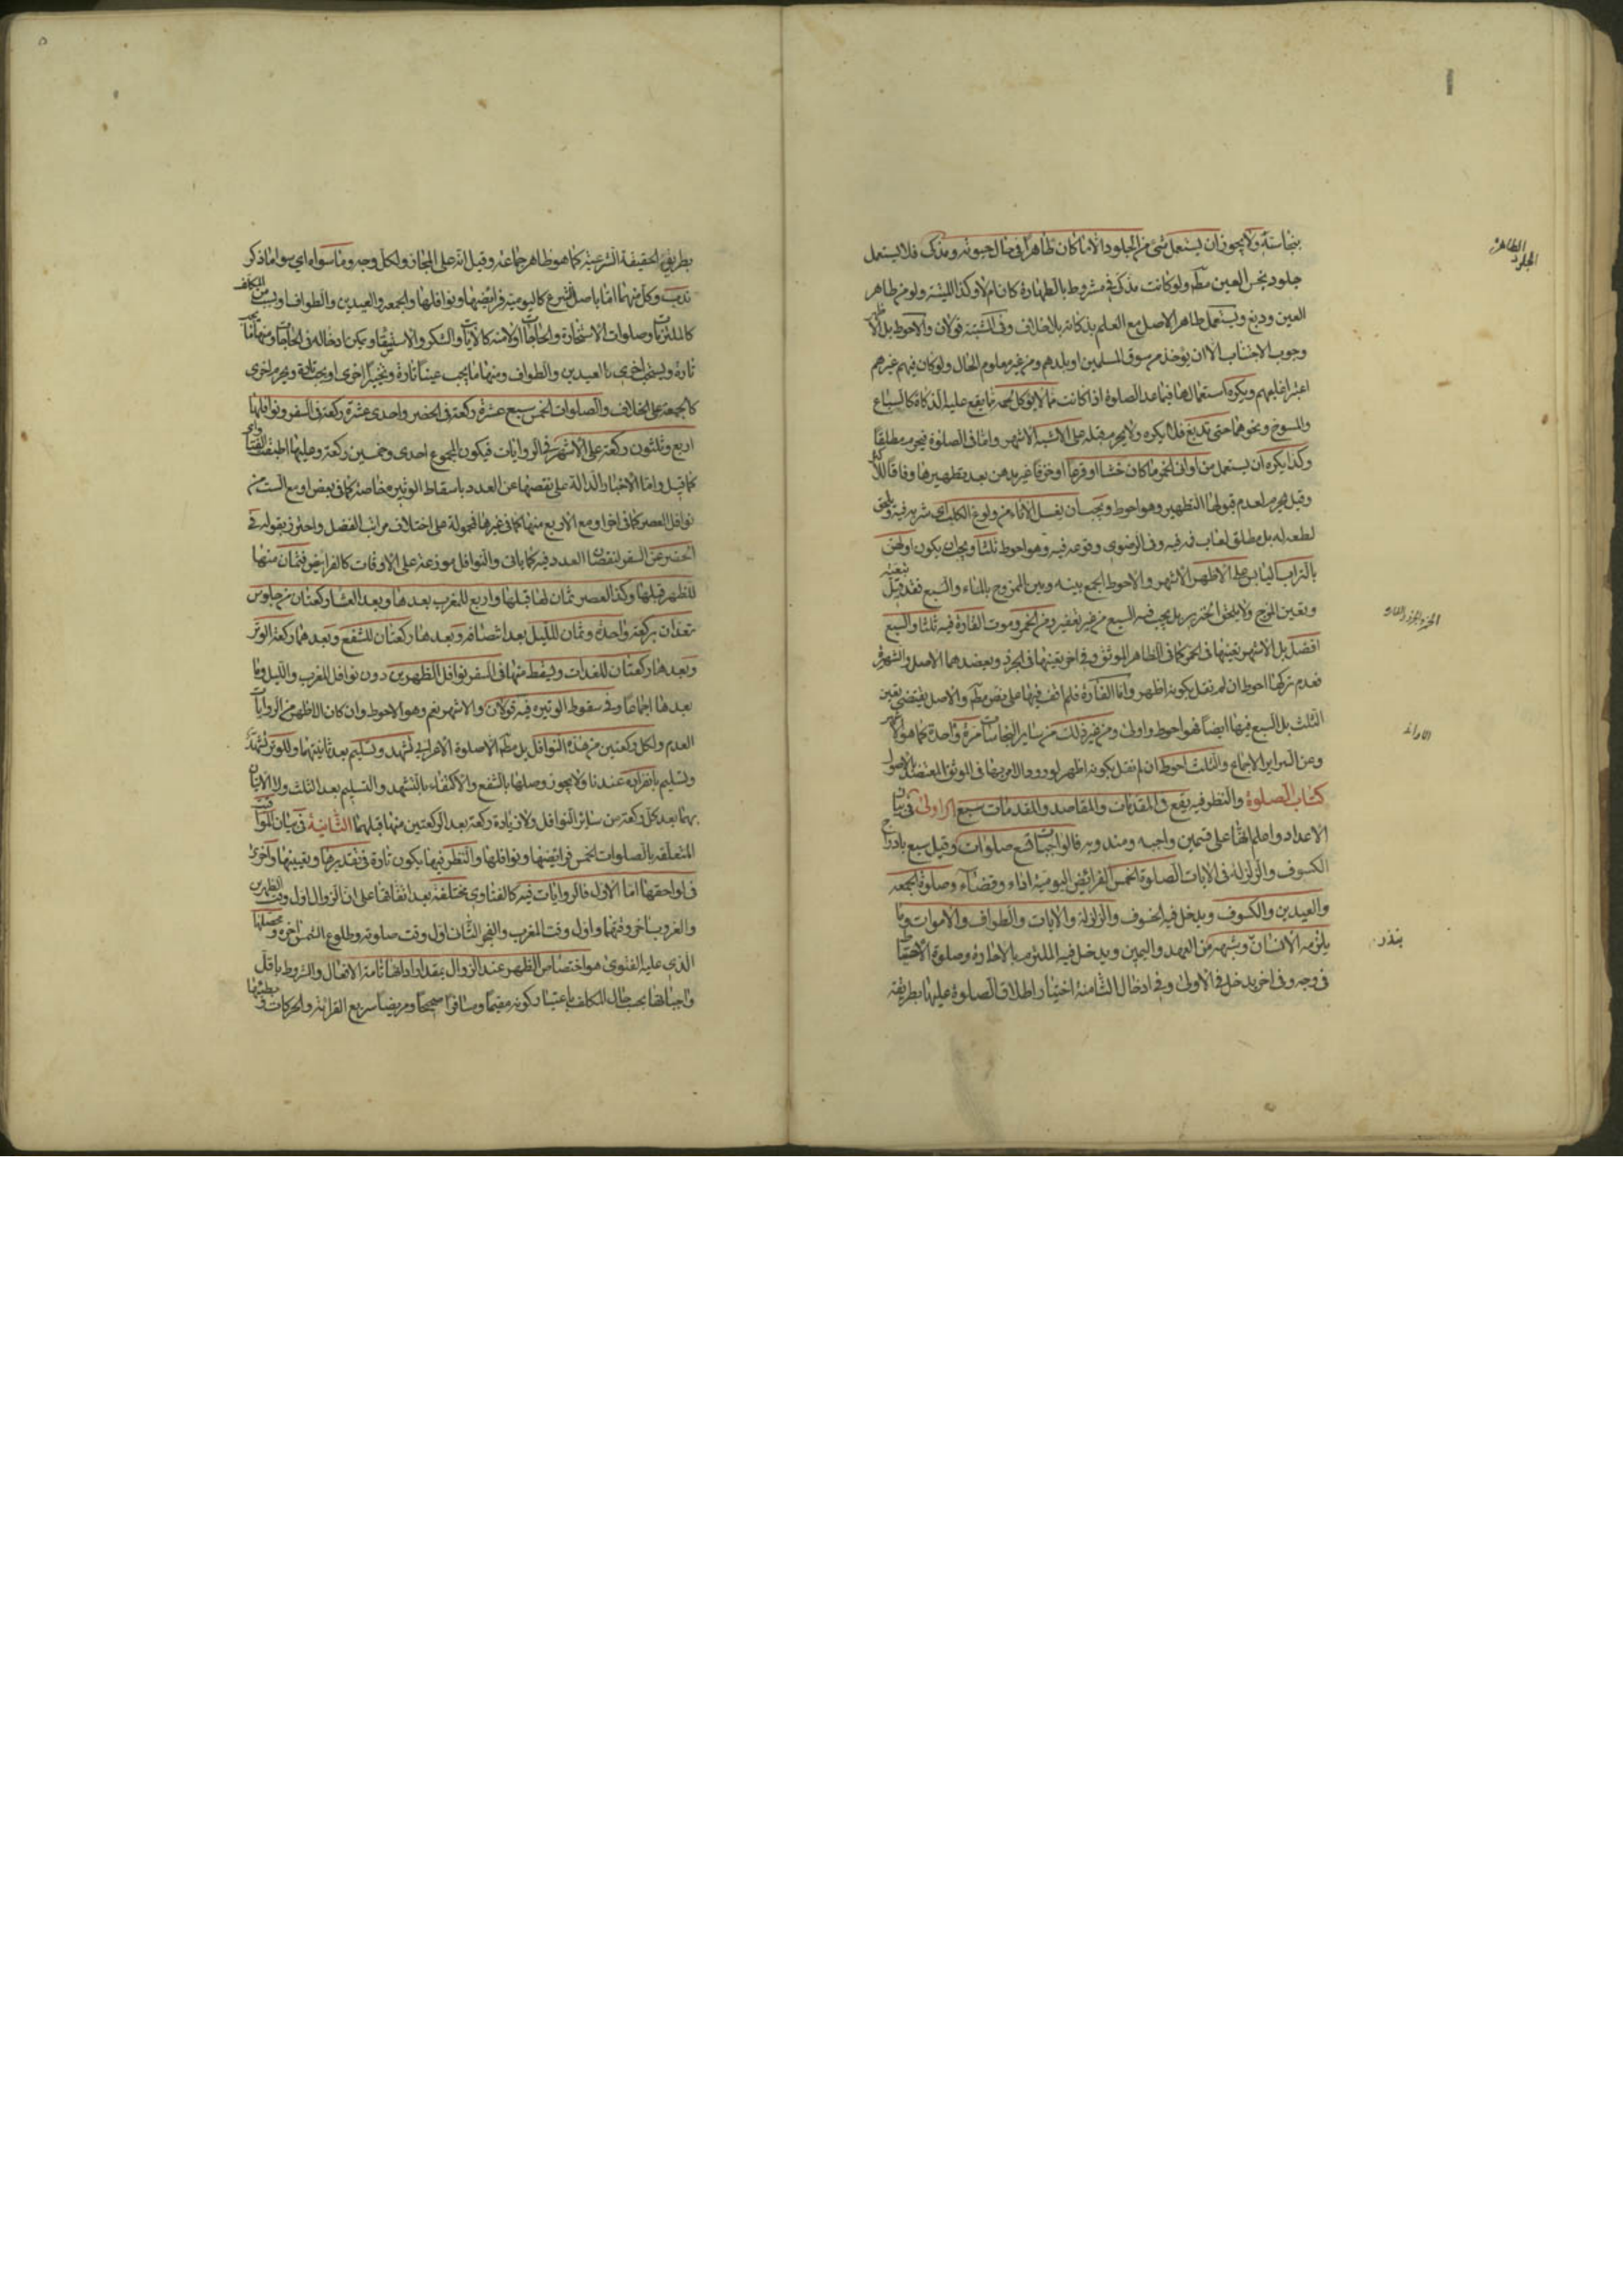 بنجاسته ولا يجوز ان يستعمل شئ من الجلود الا ما كان طاهرا فى حال حيوته ومذكى فلا يستعمل
جلود نجس العين مطم ولو كانت مذكى مشروط بالطهارة كان ام لا وكذا الميتة ولو من طاهر
العين ودبغ ويستعمل طاهر الاصل مع العلم بذكاته بلا خلاف وفى المشتبه قولان والاحوط بل الاظهر
وجوب الاجتناب الا ان يؤخذ من سوق المسلمين او بلدهم ومن غير معلوم الحال ولو كان فيهم غيرهم
اعتبر اغلبهم ويكره استعمالها فيما عد الصلوة اذا كانت مما لا يؤكل لحمه مما يقع عليه الذكاة كالسباع
والمسوخ ونحوهما حتى تدبغ فلا يكره ولا يحرم قبله على الاشبه الاشهر واما فى الصلوة فيحرم مطلقا
وكذا يكره ان يستعمل من اوانى الخمر ما كان خشبا او قرعا او خزفا غير مدهن بعد تطهيرها وفاقا للاكثر
وقيل يحرم لعدم قبولها التطهير وهو احوط ويجب ان يغسل الاناء من ولوغ الكلب اى شربه فيه ويلحق
لطعه له بل مطلق لعاب فمه فيه وفى الرضوى وقوعه فيه وهو احوط ثلثا ويجب ان يكون اوليهن
بالتراب اليابس على الاظهر الاشهر والاحوط الجمع بينه وبين الممزوج بالماء والسبع فقد قيل بتعينه
وبعين المزج ولا يلحق الخنزير بل يجب فيه السبع من غير تعفير ومن الخمر وموت الفارة فيه ثلثا والسبع
افضل بل الاشهر تعينها فى الخمر كما فى الظاهر الموثق وفى اخر تعينها فى الجرذ ويعضدهما الاصل والشهرة
فعدم تركها احوط ان لم نقل بكونه اظهر واما الفارة فلم اقف فيها على نص مطم والاصل يقتضى تعين
الثلث بل السبع فيها ايضا فهو احوط واولى ومن غير ذلك من ساير النجاسات مرة واحدة كما هو الاشهر
وعن السراير الاجماع والثلث احوط ان لم نقل بكونه اظهر لورود الامر بها فى الموثق المعتضد بالاصول
كتاب الصلوة والنظر فيه يقع فى المقدمات والمقاصد والمقدمات سبع الاولى فى بيان
الاعداد واعلم انها على قسمين واجبه ومندوبه فالواجبات تسع صلوات وقيل سبع بادراج
الكسوف والزلزلة فى الايات الصلوة الخمس الفرائض اليومية اداء وقضاء وصلوة الجمعه
والعيدين والكسوف ويدخل فيه الخسوف والزلزلة والايات والطواف والاموات وما
يلزمه الانسان وشبهه من العهد واليمين ويدخل فيه الملتزم بالاجارة وصلوة الاحتياط
فى وجه وفى اخر يدخل فى الاولى وفى ادخال الثامنة اختيار اطلاق الصلوة عليها بطريقة
الجلود الطاهرة
بنذر
بطريق الحقيقة الشرعية كما هو ظاهر جماعه وقيل انه على المجاز ولكل وجه وما سواه اى سوا ما ذكر
ندب وكل منهما اما باصل الشرع كاليومية فرائضها ونوافلها والجمعه والعيدين والطواف او بسبب من المكلف
كالملتزمات وصلوات الاستخارة والحاجات اولا منه كالايات والشكر والاستسقاء ويمكن ادخاله فى الحاجات ومنها ما يجب
تارة ويستحب اخرى كالعيدين والطواف ومنها ما يجب عينا تارة وتخييرا اخرى او يجب تارة ويحرم اخرى
كالجمعة على الخلاف والصلوات الخمس سبع عشرة ركعة فى الحضر واحدى عشرة ركعة فى السفر ونوافلها
اربع وثلثون ركعة على الاشهر فى الروايات فيكون المجموع احدى وخمسين ركعة وعليها اطبقت الفتاوى
كما قيل واما الاخبار الدالة على نقصها عن العدد باسقاط الوتيره خاصة كما فى بعض او مع الست من
نوافل العصر كما فى اخر او مع الاربع منها كما فى غيرها فمحمولة على اختلاف مراتب الفضل واحترز بقوله فى
الحضر عن السفر لنقصان العدد فيه كما ياتى والنوافل موزعة على الاوقات كالفرايض فثمان منها
للظهر قبلها وكذا العصر ثمان لها قبلها واربع للمغرب بعدها وبعد العشاء ركعتان من جلوس
تعدان بركعة واحدة وثمان لليل بعد انتصافه وبعدها ركعتان للشفع وبعدهما ركعة الوتر
وبعدها ركعتان للغداة ويسقط منها فى السفر نوافل الظهرين دون نوافل المغرب والليل وما
بعدها اجماعا وفى سقوط الوتيره فيه قولان والاشهر نعم وهو الاحوط وان كان الاظهر من الروايات
العدم ولكل ركعتين من هذه النوافل بل مطم الا صلوة الاعرابى تشهد وتسليم بعد ثانيتهما وللوتر تشهد
وتسليم بانفراده عندنا ولا يجوز وصلها بالشفع والاكتفاء بالتشهد والتسليم بعد الثلث ولا الاتيان
بهما بعد كل ركعة من سائر النوافل ولا زيادة ركعة بعد الركعتين منها قبلهما الثانية فى بيان المواقيت
المتعلقه بالصلوات الخمس فرائضها ونوافلها والنظر فيها يكون تارة فى تقديرها وتعيينها واخرى
فى لواحقها اما الاول فالروايات فيه كالفتاوى مختلفة بعد اتفاقها على ان الزوال اول وقت الظهرين
والغروب اخر وقتهما واول وقت المغرب والفجر الثانى اول وقت صلوته وطلوع الشمس اخره ومحصلها
الذى عليه الفتوى هو اختصاص الظهر عند الزوال بمقدار ادائها تامة الافعال والشروط باقل
واجباتها بحسب حال المكلف باعتبار كونه مقيما ومسافرا صحيحا ومريضا سريع القرائة والحركات وبطيئها